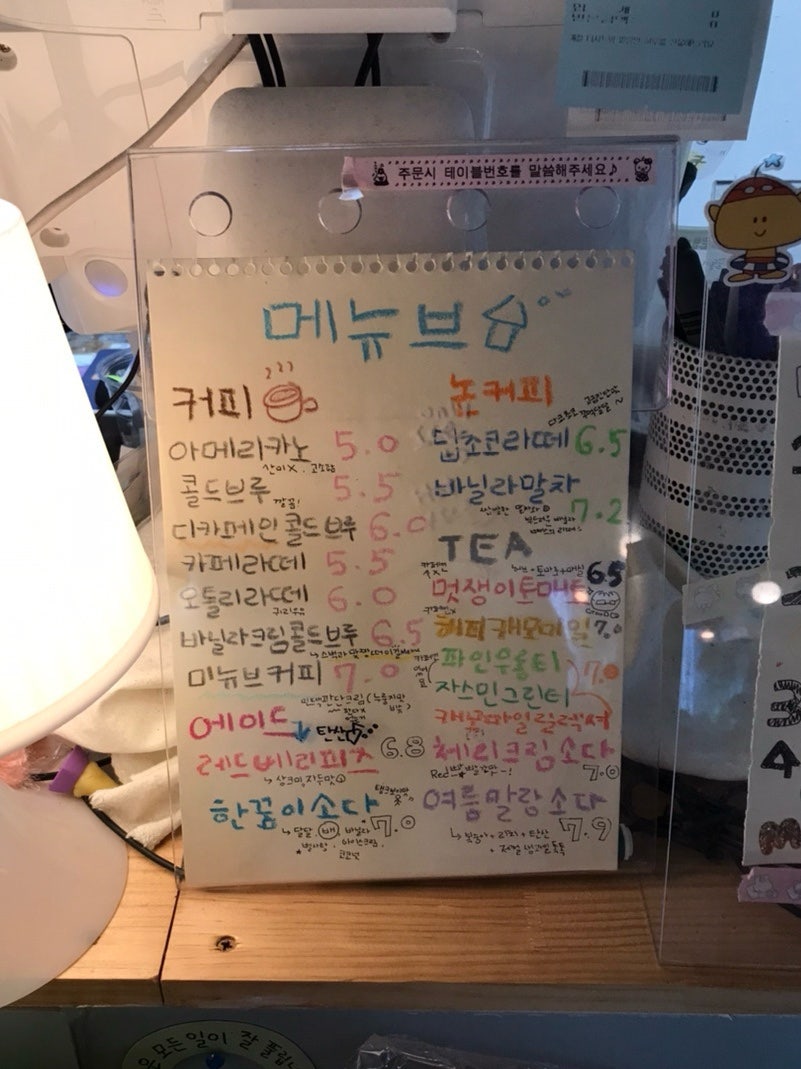 주문시 테이블번호를 말씀해주세요♪
메뉴브
커피
아메리카노 5.0
산미X. 고소함
콜드브루 5.5
깔끔!
디카페인콜드브루 6.0
카페라떼 5.5
오틀리라떼 6.0
귀리우유
바닐라크림콜드브루 6.5
미뉴브커피 7.0
에이드
탄산
레드베리피즈 6.8
상크미, 자두맛
한꿈이소다 7.0
달달 배 바닐라
별사탕. 아이스크림.
코코넛
논커피
딥초코라떼 6.5
바닐라말차 7.2
TEA
멋쟁이토매토 6.5
해피캐모마일 7.0
파인우롱티
자스민그린티
7.0
캐모마일릴렉서
체리크림소다 7.0
여름말랑소다 7.9
모든일이 잘 풀립니